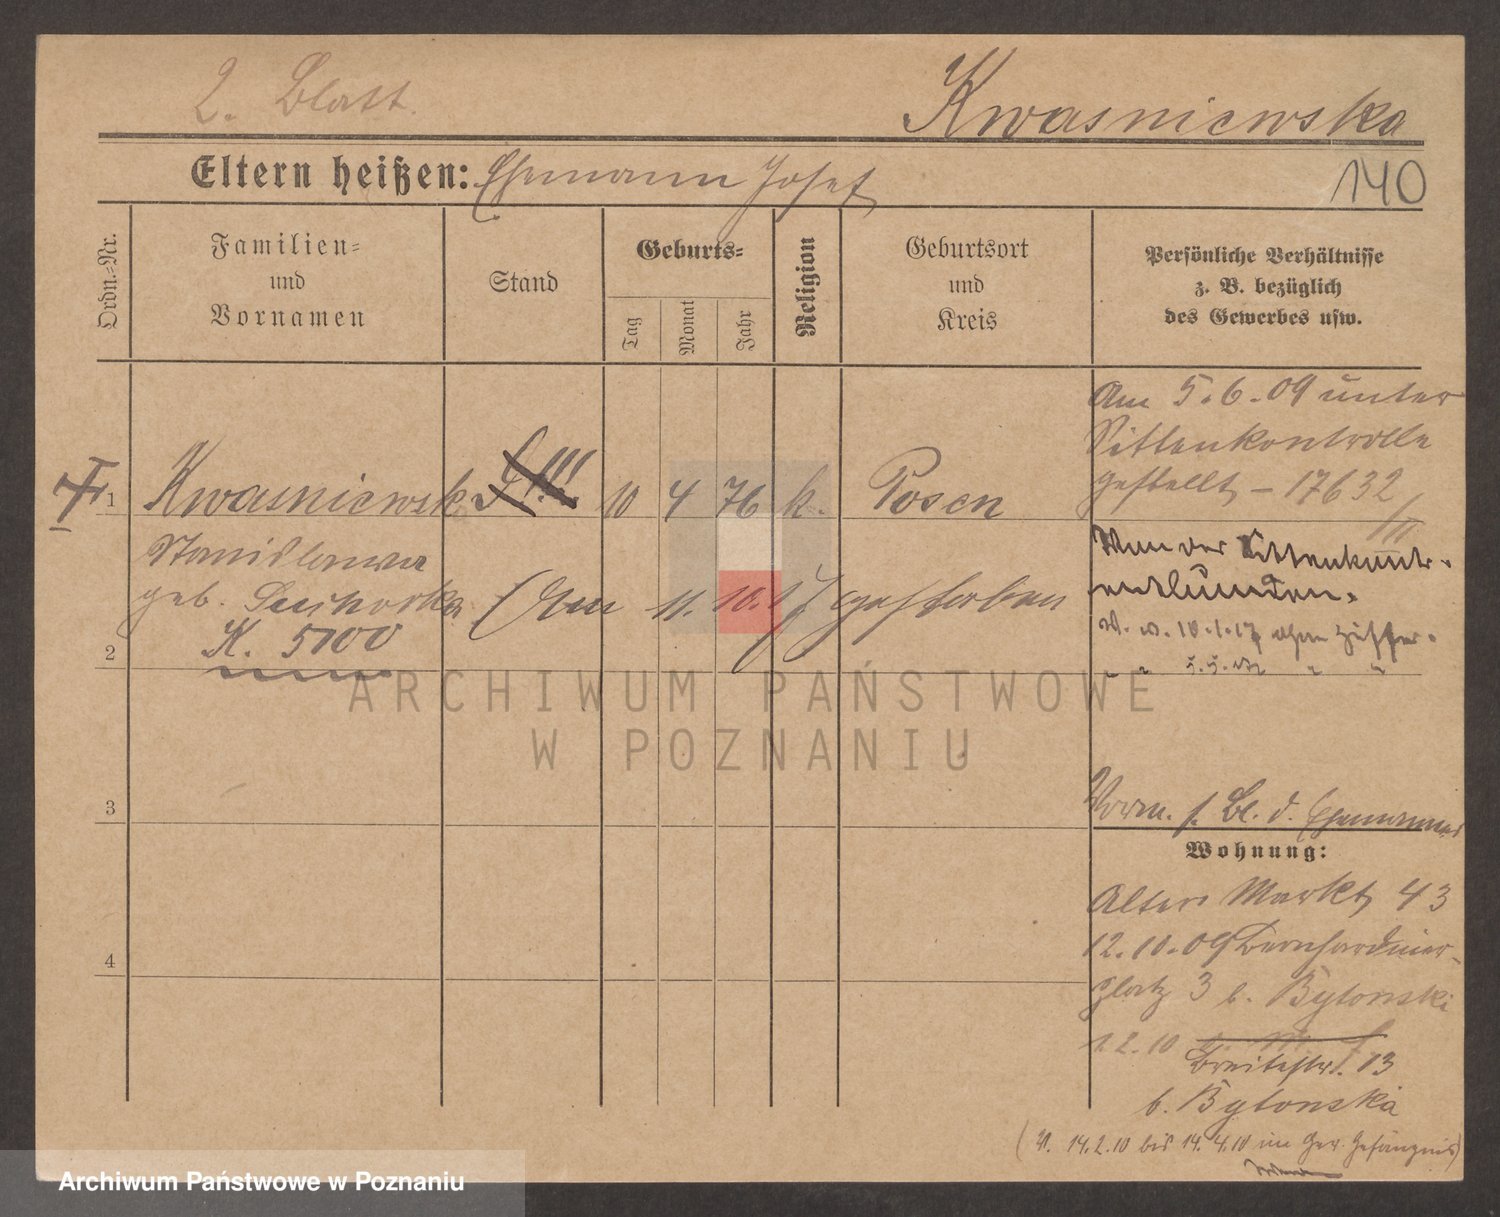 2. Blatt.
Kwasniewska
Eltern heißen: Ehemann Josef
140
Ordn.-Nr.
Familien-
und
Vornamen
Stand
Geburts-
Tag
Monat
Jahr
Religion
Geburtsort
und
Kreis
Persönliche Verhältnisse
z. B. bezüglich
des Gewerbes usw.
Am 5.6.09 unter
Sittenkontrolle
gestellt – 17632
1 Kwasniewska 10 4 76 k. Posen
Stanislawa
geb.
(Am 11. 10. 17 gestorben
K. 5700
Von der Sittenkontr.
entbunden.
W. v. 10.1.17 ohne Ziffer.
2
ARCHIWUM PAŃSTWOWE
W POZNANIU
3
Vorm. s. Bl. d. Ehemannes
Wohnung:
Alter Markt 43
12.10.09 Bernhardiner-
platz 3 b. Bytonski
4
1.2.10
Breitestr. 13
b. Bytonska
(V. 14.2.10 bis 14.4.10 im Ger. Gefängnis)
Archiwum Państwowe w Poznaniu